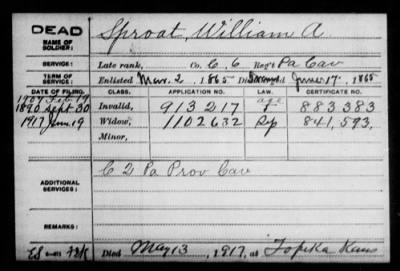 DEAD
NAME OF SOLDIER:
Sproat, William A.
SERVICE:
Late rank, Co. C, 6 Reg't Pa Cav
TERM OF SERVICE:
Enlisted Mar. 2, 1865 Discharged June 17, 1865
DATE OF FILING. CLASS. APPLICATION NO. LAW. CERTIFICATE NO.
1907 Feb 19 age
1890 Sept 30 Invalid, 913217 883383
1917 June 19 Widow, 1102632 841,593.
Minor,
ADDITIONAL SERVICES:
C 2 Pa Prov Cav
REMARKS:
Died May 13, 1917, at Topeka Kans